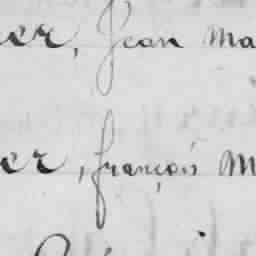 er, Jean Ma
er, françois M